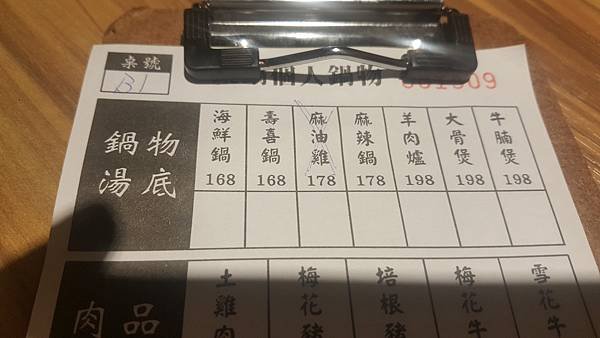 桌號
B1
個人鍋物
鍋物
湯底
海鮮鍋 168
壽喜鍋 168
麻油雞 178
麻辣鍋 178
羊肉爐 198
大骨煲 198
牛腩煲 198
肉品
土雞肉
梅花豬
培根豬
梅花牛
雪花牛